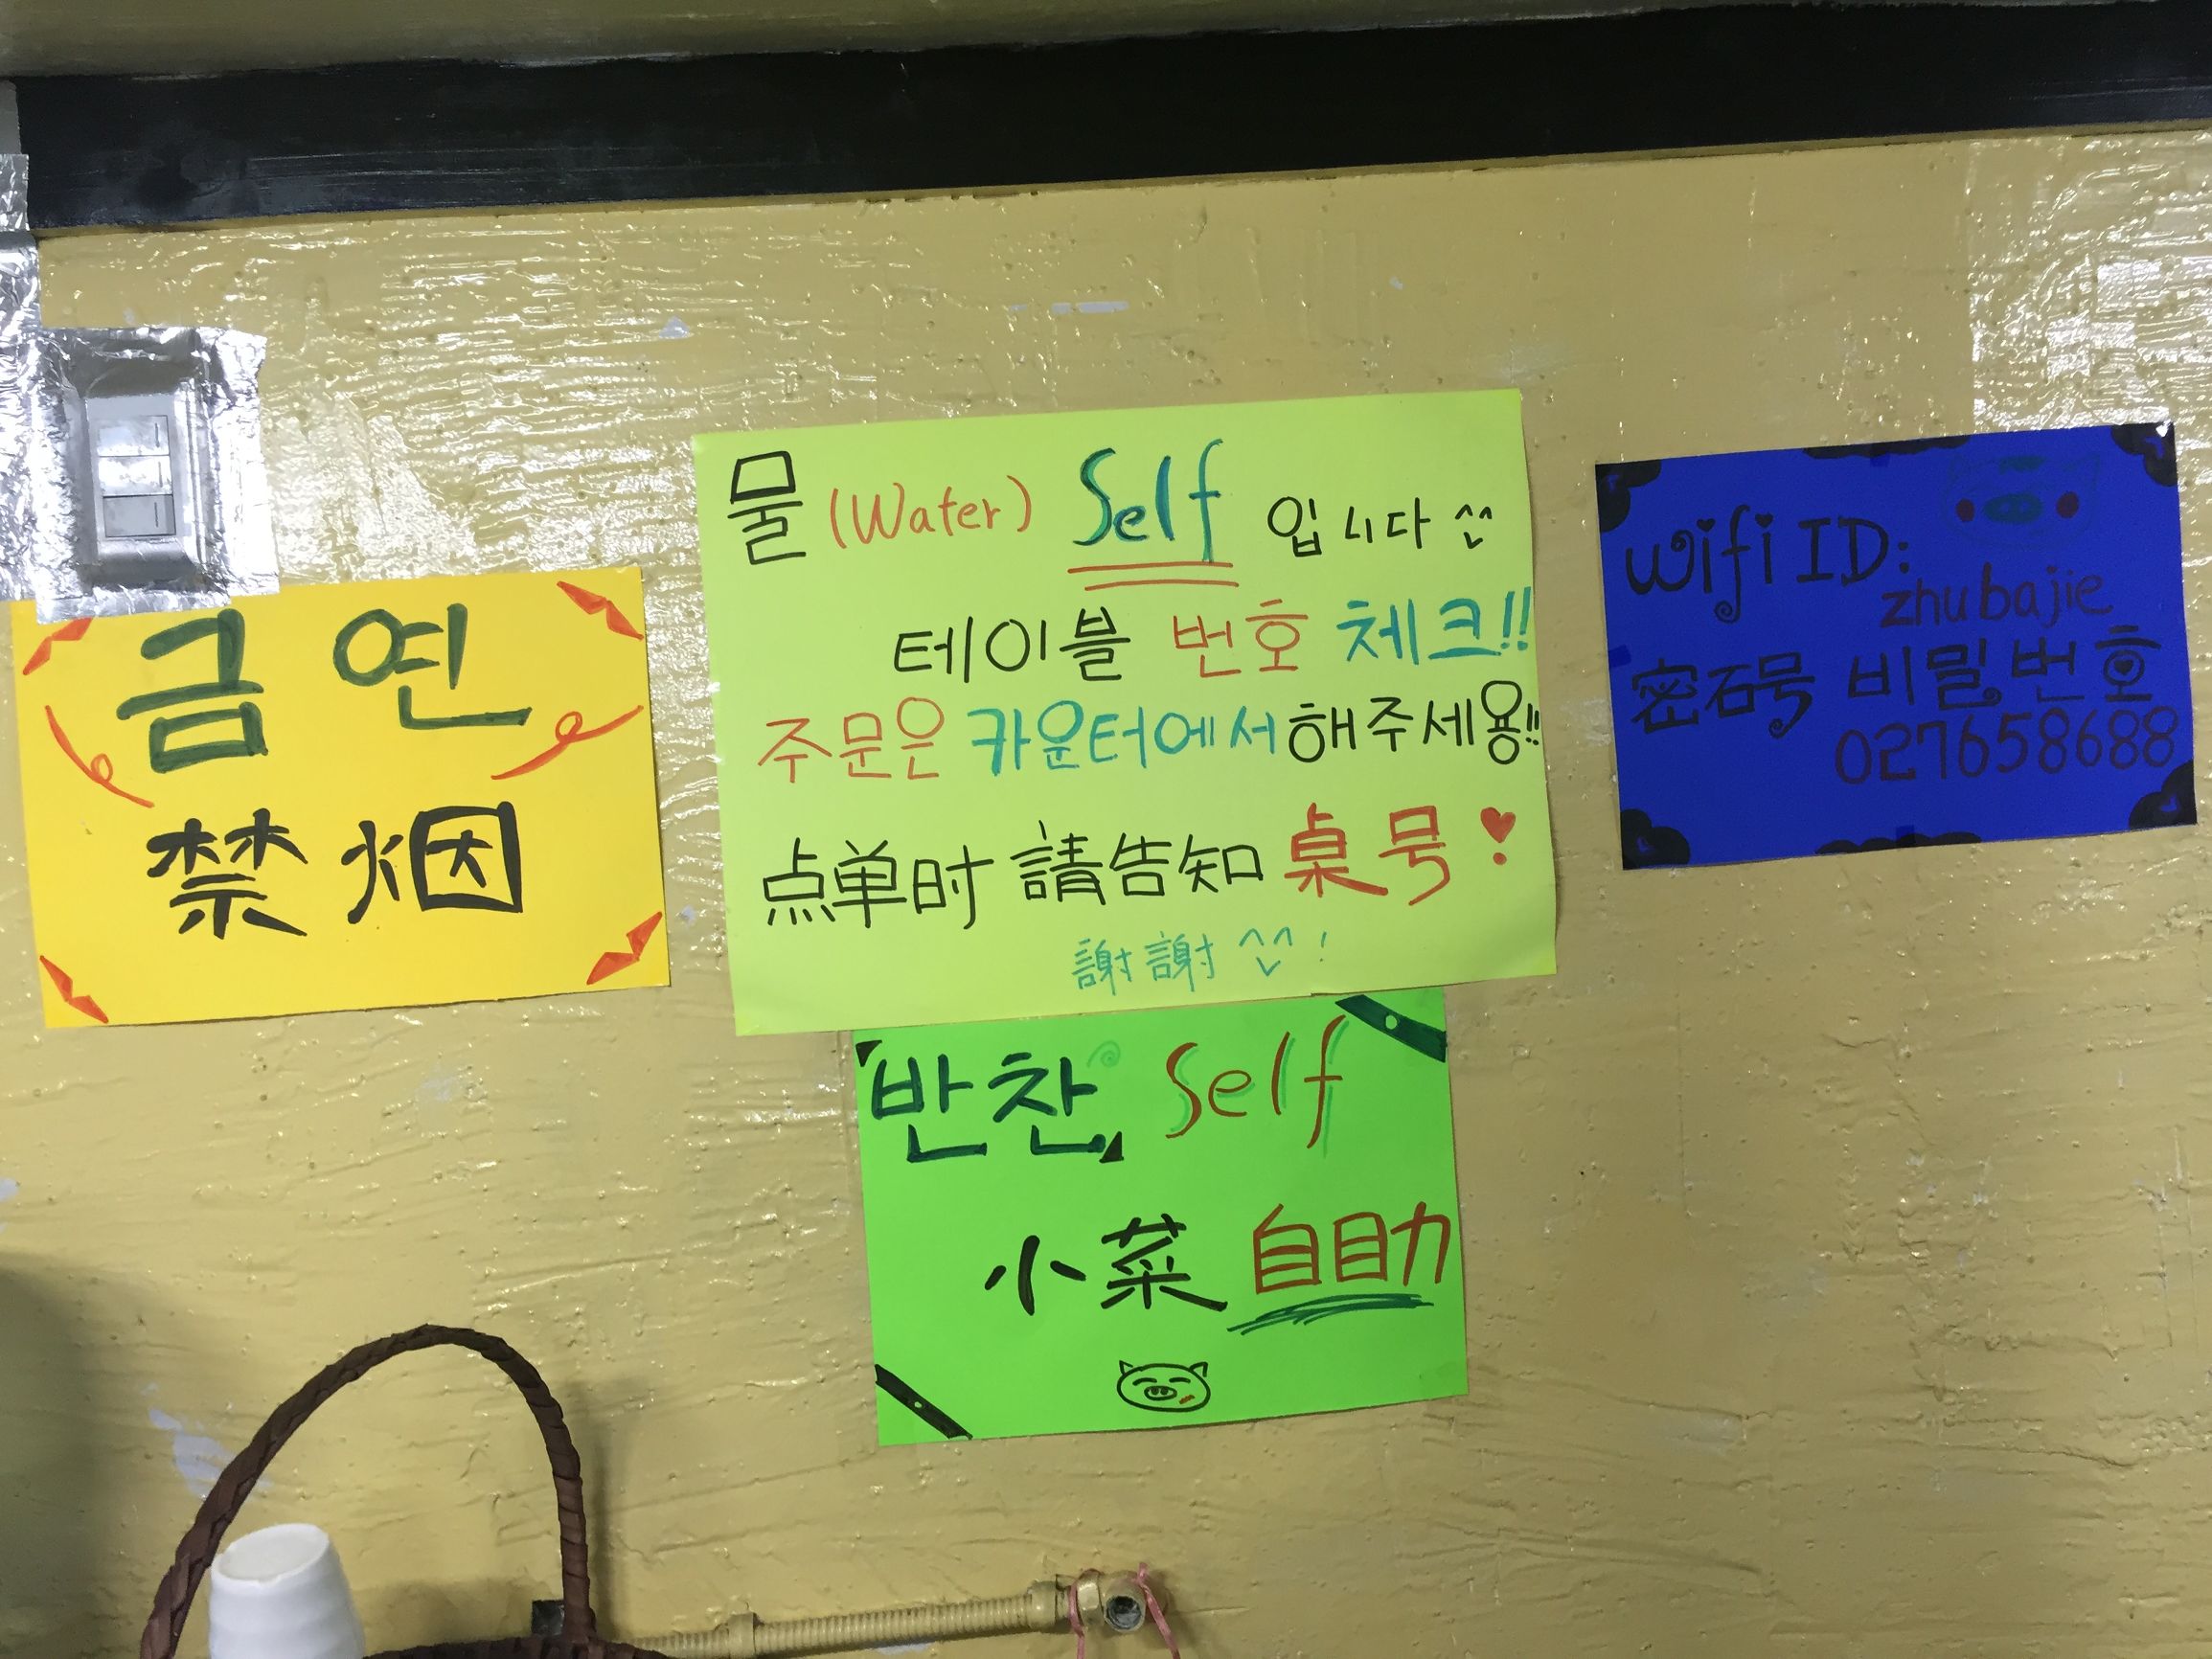 금연
禁烟
물 (Water) Self 입니다 ^^
테이블 번호 체크!!
주문은 카운터에서 해주세용!!
点单时 請告知 桌号!
謝謝 ^^!
반찬 Self
小菜 自助
wifi ID:
zhubajie
密码号 비밀번호
027658688